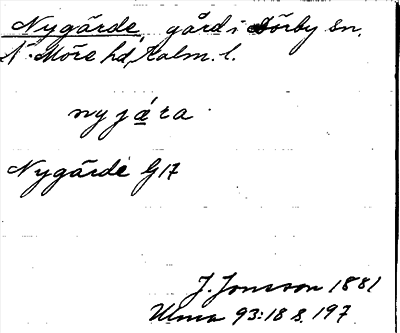 Nygärde, gård i Dörby sn,
N. Möre hd, Kalm. l.
nyjáta
Nygärde G17
J. Jonsson 1881
Ulma 93:18 s. 197